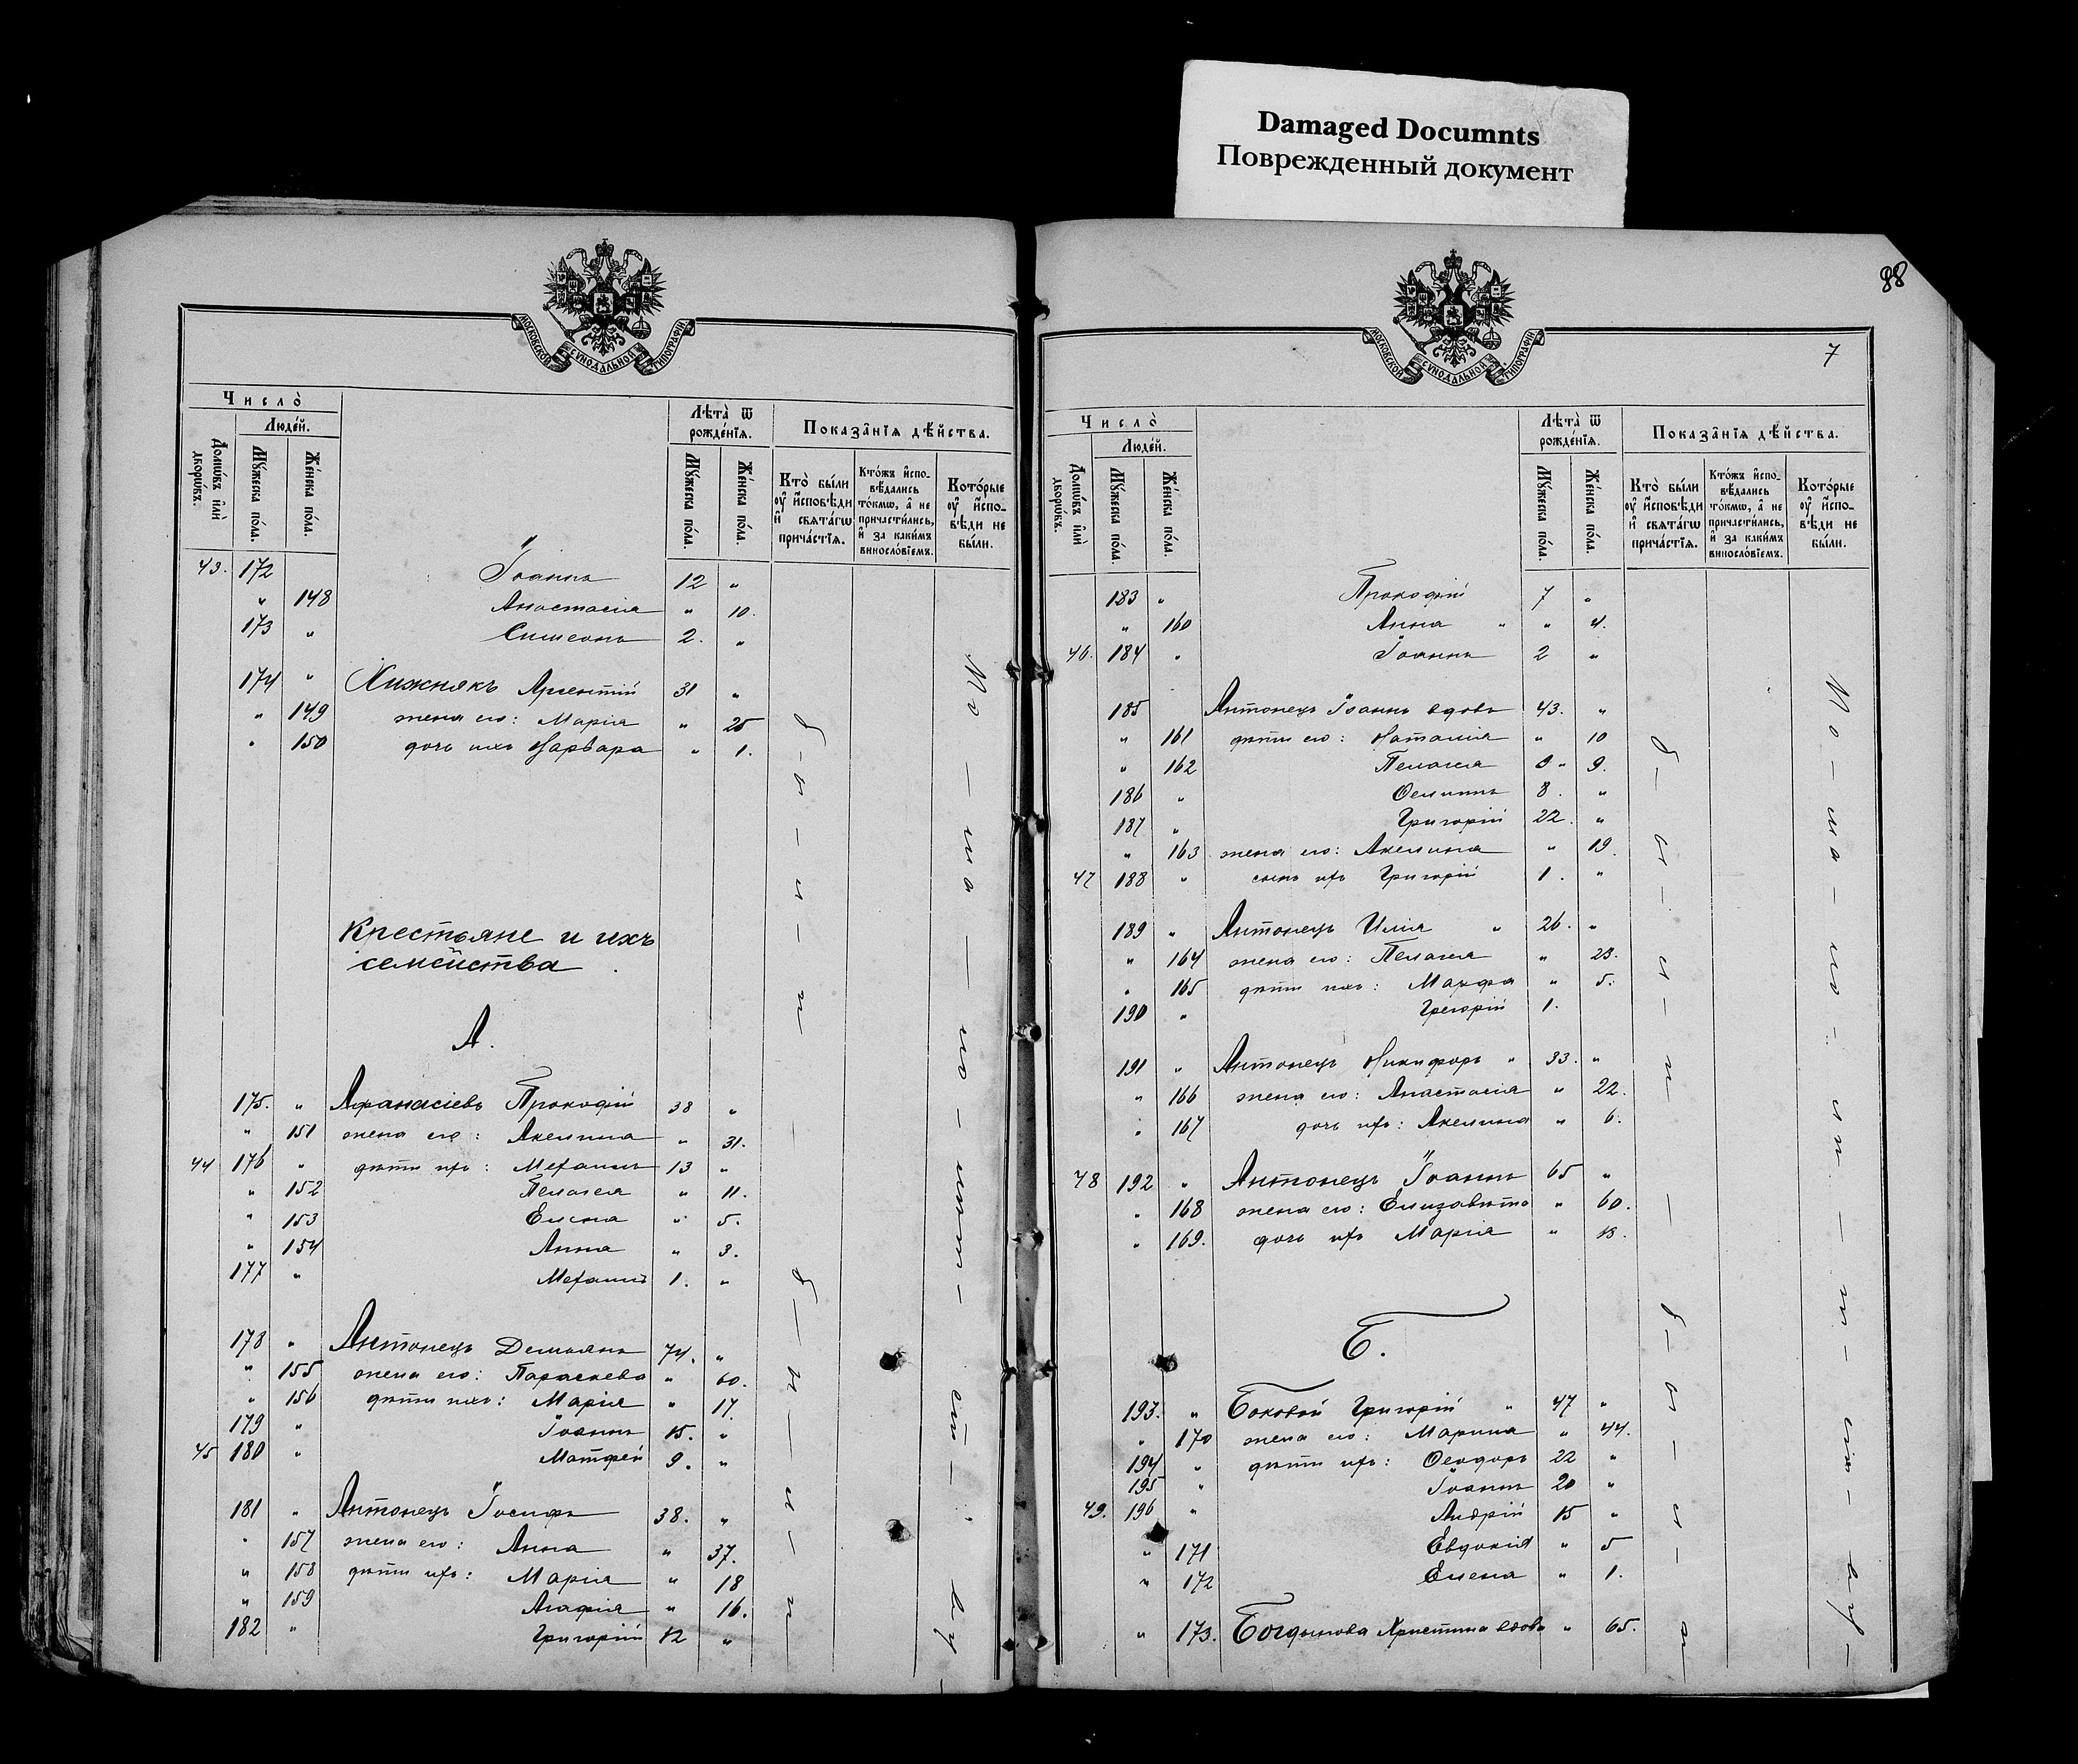 Damaged Documnts
Поврежденный документ
МОСКОВСКОЙ СѴНОДАЛЬНОЙ ТИПОГРАФІИ
Число̀
Людéй.
Домѡ́въ и҆лѝ дворѡ́въ.
Мꙋ́жеска по́ла.
Же́нска по́ла.
Лѣ́та ѿ рожде́нїѧ.
Мꙋ́жеска по́ла.
Же́нска по́ла.
Показа̂нїѧ дѣ́йства.
Кто̀ бы́ли ᲂу҆ и҆́сповѣди и҆ свѧта́гѡ прича́стїѧ.
Кто́жъ и҆спо-вѣ́дались то́кмѡ, а҆ не причасти́лись, и҆ за каки́мъ винослові́емъ.
Кото́рые ᲂу҆ и҆́спо-вѣди не бы́ли.
43. 172 Іоаннъ 12 "
" 148 Анастасія " 10.
173 " Симеонъ 2. "
174 " Хижнякъ Арсентій 31 "
" 149 жена его: Марія " 25
" 150 дочь ихъ Варвара " 1.
Крестьяне и ихъ
семейства
А.
175. " Афанасіевъ Прокофій 38 "
" 151 жена его: Акелина " 31.
44 176 " дѣти ихъ: Мефаилъ 13 "
" 152 Пелагея " 11.
" 153 Елена " 5.
" 154 Анна " 3.
177 " 1. "
178 " Антонецъ Демьянъ 74. "
" 155 жена его: Параскева " 60.
" 156 дѣти ихъ: Марія " 17.
179 " Іоаннъ 15. "
45 180 " Матфей 9. "
181 " Антонецъ Іосифъ 38. "
" 157 жена его: Анна " 37.
" 158 дѣти ихъ: Марія " 18
" 159 Агафія " 16.
182 " Григорій 12 "
88
7
МОСКОВСКОЙ СѴНОДАЛЬНОЙ ТИПОГРАФІИ
Число̀
Людéй.
Домѡ́въ и҆лѝ дворѡ́въ.
Мꙋ́жеска по́ла.
Же́нска по́ла.
Лѣ́та ѿ рожде́нїѧ.
Мꙋ́жеска по́ла.
Же́нска по́ла.
Показа̂нїѧ дѣ́йства.
Кто̀ бы́ли ᲂу҆ и҆́сповѣди и҆ свѧта́гѡ прича́стїѧ.
Кто́жъ и҆спо-вѣ́дались то́кмѡ, а҆ не причасти́лись, и҆ за каки́мъ винослові́емъ.
Кото́рые ᲂу҆ и҆́спо-вѣди не бы́ли.
183 " Прокофій 7 "
" 160 Анна " " 4.
46. 184 " Іоаннъ 2 "
185 Антонецъ Іоаннъ вдовъ 43. "
" 161 дѣти его: Наталія " 10
" 162 Пелагея " 9.
186 " 8. "
187 " Григорій 22. "
" 163 жена его: Акелина " 19.
47 188 " сынъ ихъ Григорій 1. "
189 " Антонецъ Илія " 26. "
" 164 жена его: Пелагея " 23.
" 165 дѣти ихъ: Марфа " 5.
190 " Григорій 1.
191 " Антонецъ Никифоръ " 33. "
" 166 жена его: Анастасія " 22.
" 167 дочь ихъ: Акелина " 6.
48 192 " Антонецъ Іоаннъ 65 "
" 168 жена его: Елизавета " 60.
" 169. дочь ихъ Марія " 18.
Б.
193. " Боковой Григорій " 47 "
" 170 жена его: Марина " 44.
194 " дѣти ихъ: Ѳеодоръ 22 "
195 " Іоаннъ 20 "
49. 196 " Андрій 15 "
" 171 Евдокія " 5
" 172 Елена " 1.
" 173. Богданова Христина вдова " 65.